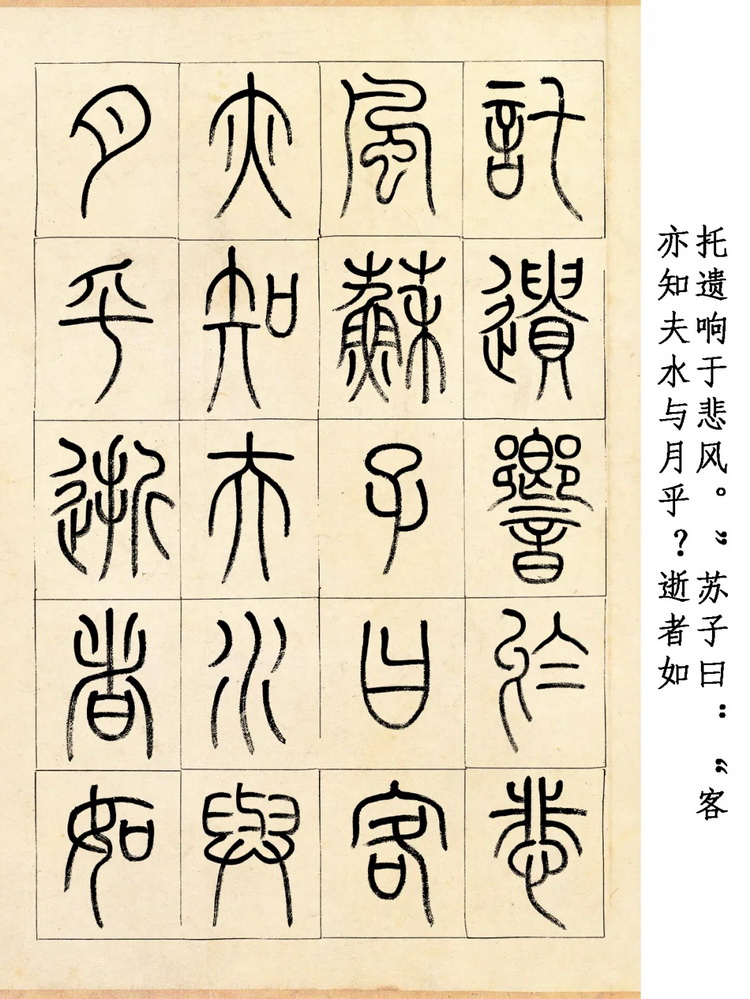 托遗响于悲风。”苏子曰：“客
亦知夫水与月乎？逝者如
託遺響於悲
風蘇子曰客
亦知夫水與
月乎逝者如